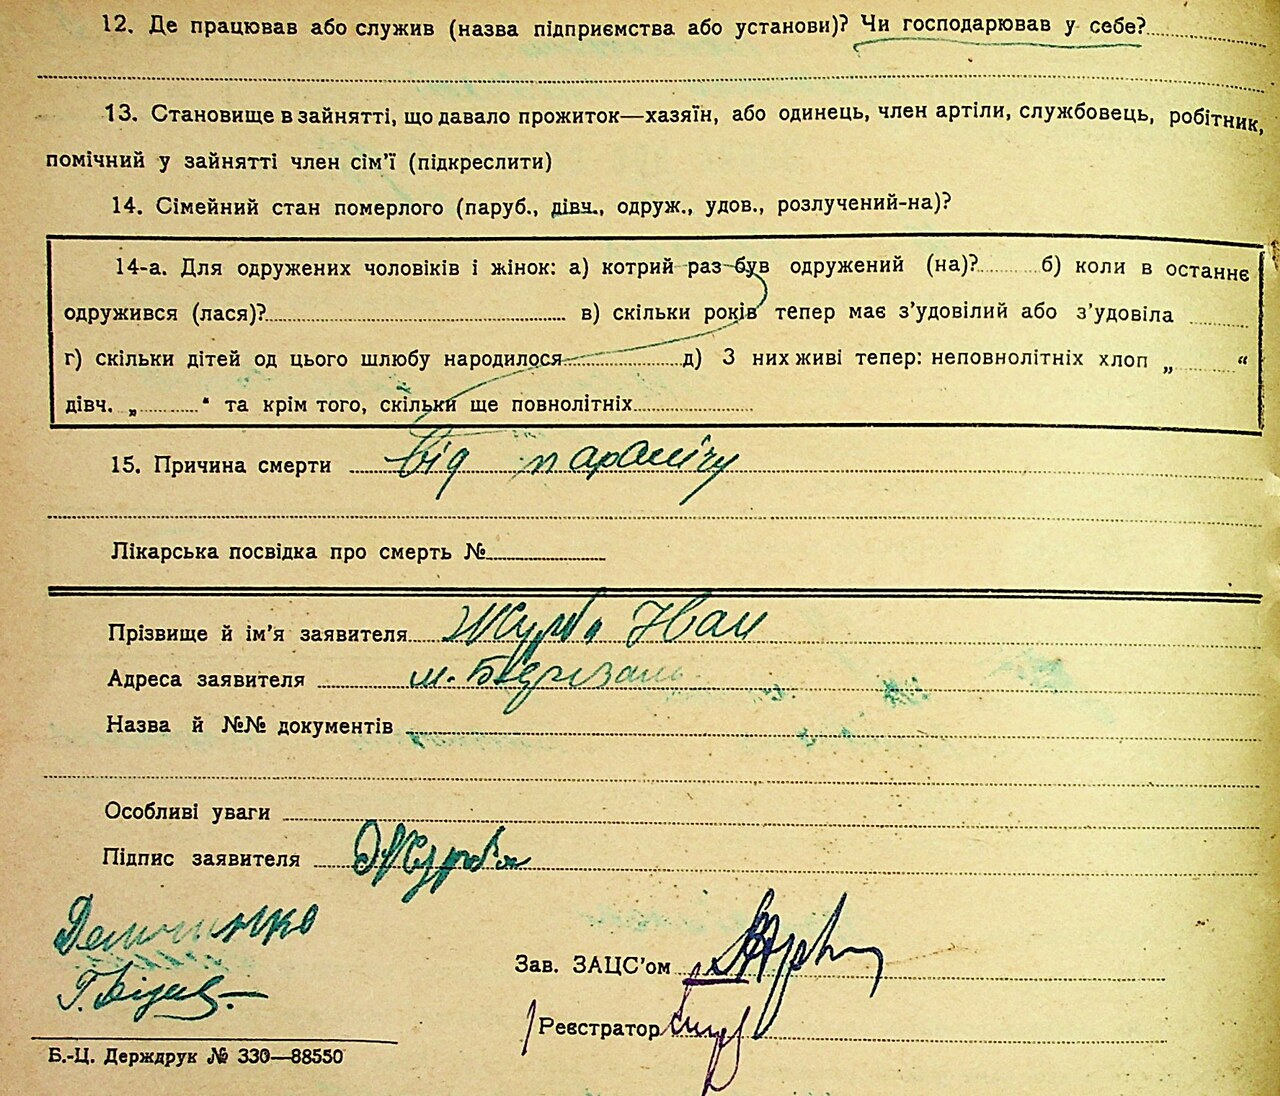 12. Де працював або служив (назва підприємства або установи)? Чи господарював у себе?
13. Становище в зайнятті, що давало прожиток—хазяїн, або одинець, член артіли, службовець, робітник,
помічний у зайнятті член сім’ї (підкреслити)
14. Сімейний стан померлого (паруб., дівч., одруж., удов., розлучений-на)?
14-а. Для одружених чоловіків і жінок: а) котрий раз був одружений (на)? б) коли в останнє
одружився (лася)? в) скільки років тепер має з’удовілий або з’удовіла
г) скільки дітей од цього шлюбу народилося д) З них живі тепер: неповнолітніх хлоп „ “
дівч. „ “ та крім того, скільки ще повнолітніх
15. Причина смерти від паралічу
Лікарська посвідка про смерть №
Прізвище й ім’я заявителя Журба Іван
Адреса заявителя м.
Назва й №№ документів
Особливі уваги
Підпис заявителя Журба
Зав. ЗАЦС’ом
Реєстратор
Б.-Ц. Держдрук № 330—88550